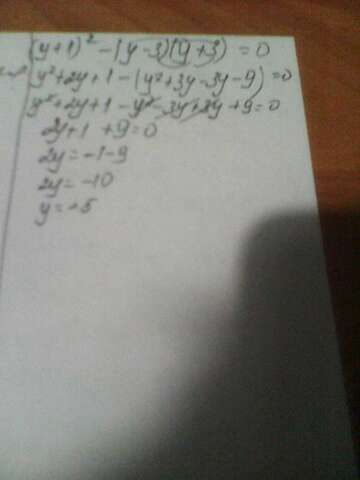 (y+1)² - (y-3)(y+3) = 0
y²+2y+1-(y²+3y-3y-9)=0
y²+2y+1-y²-3y+3y+9=0
2y+1+9=0
2y=-1-9
2y=-10
y=-5